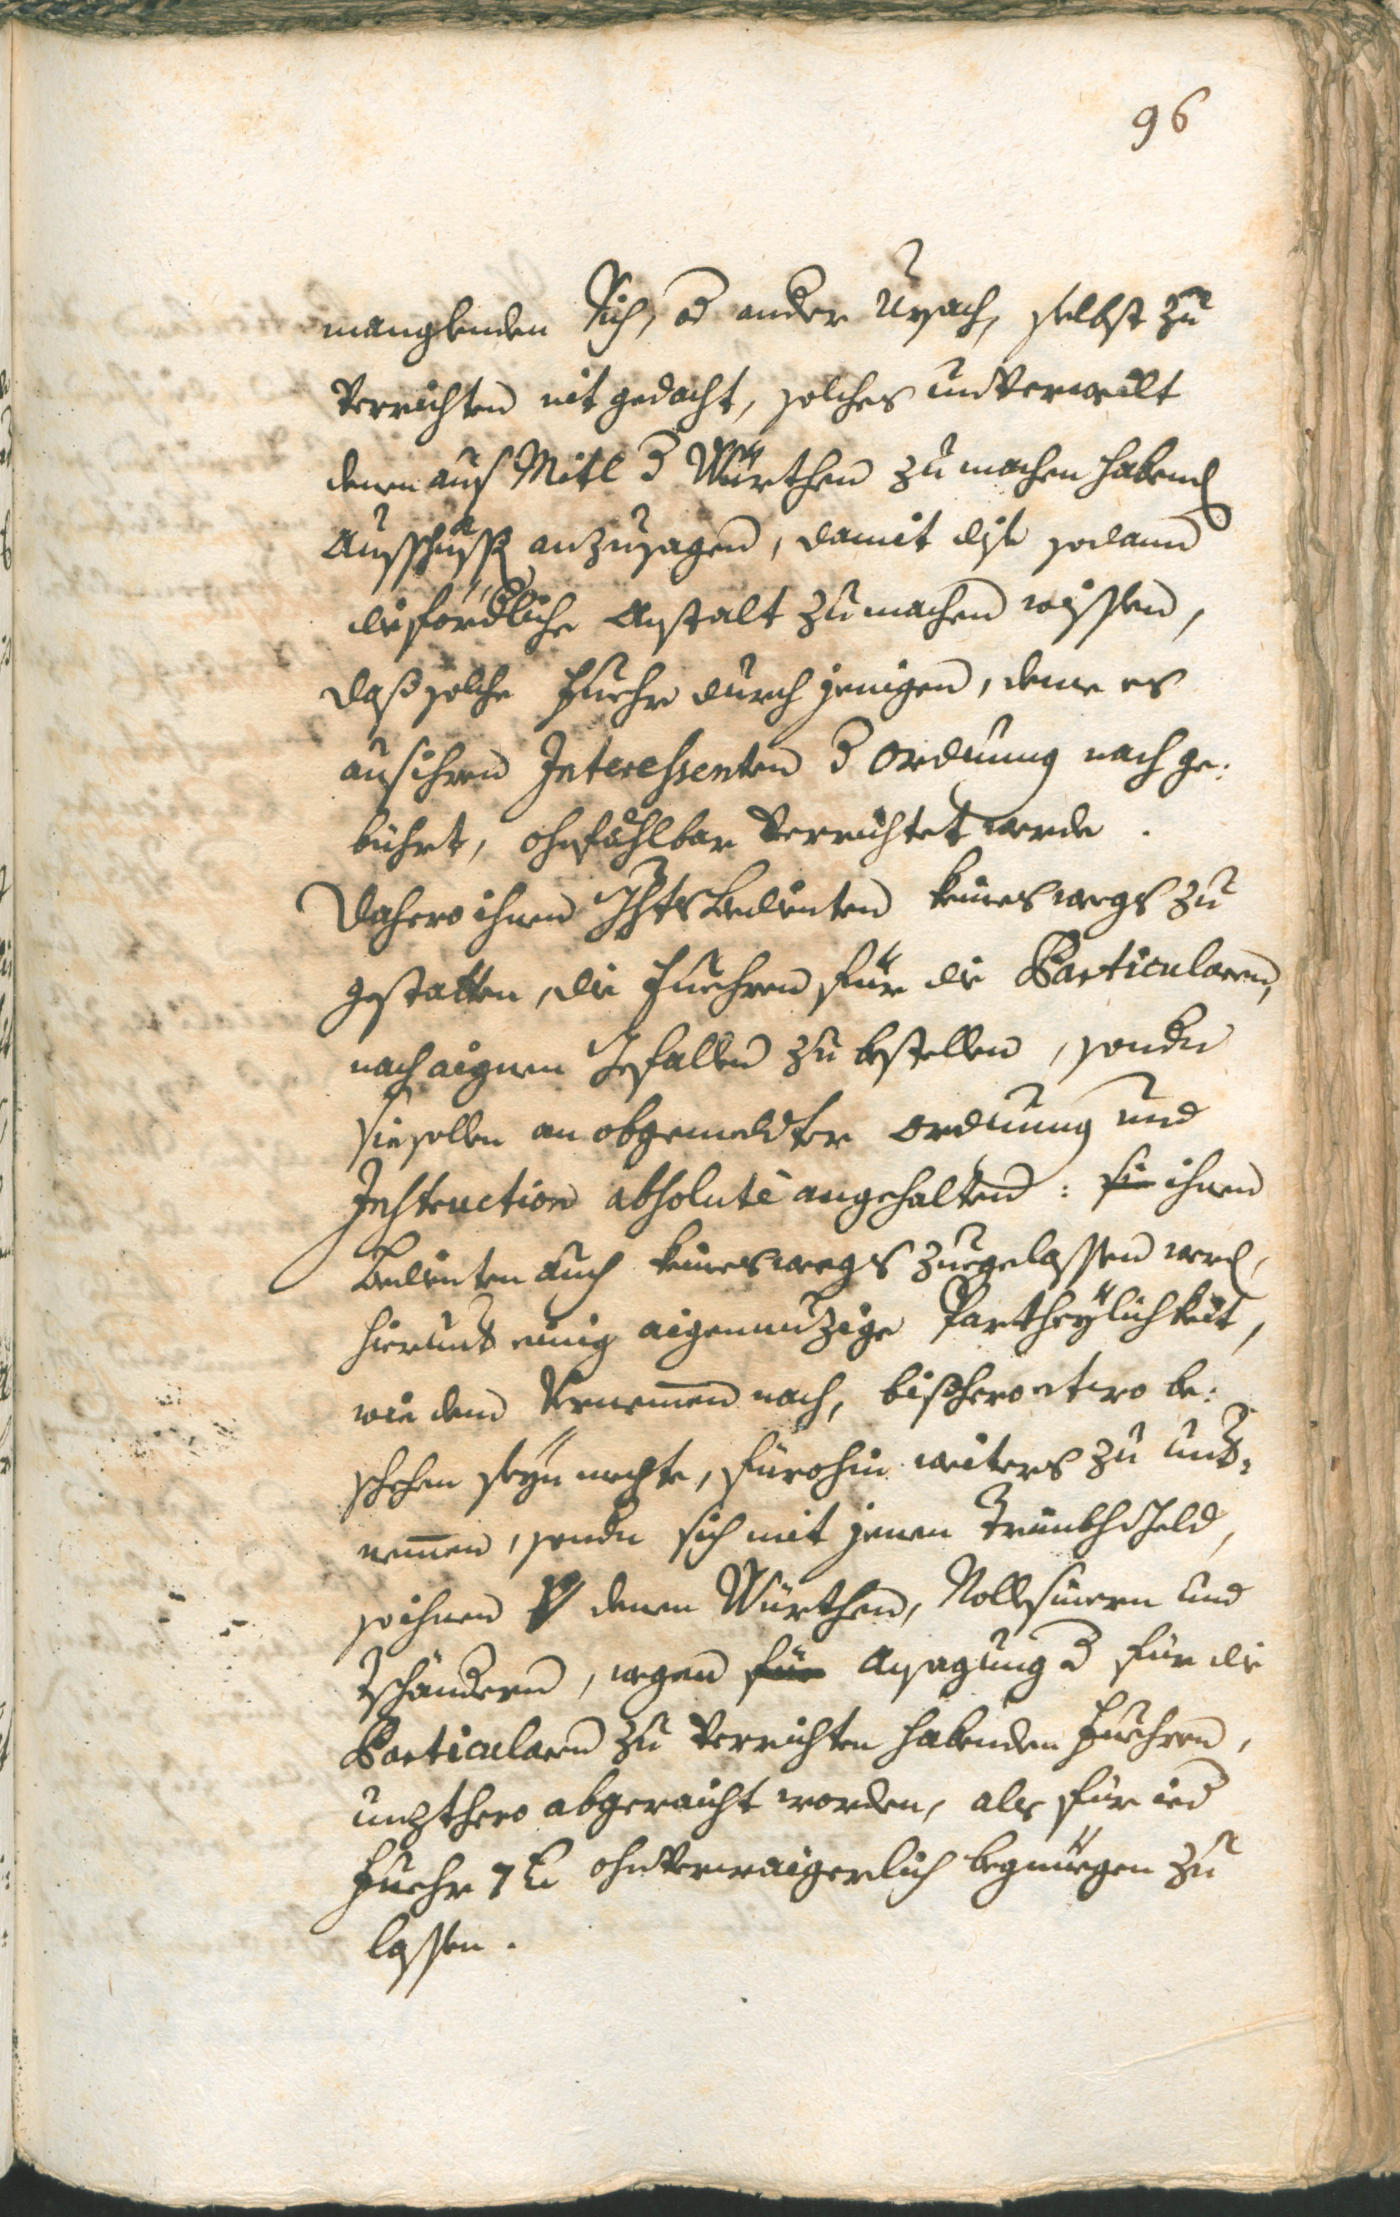 96
manglenden Vich, od ander Ursach, selbst zu
verrichten nit gedacht, solches unverweilt
denen aus Mitl d Würthen zu machen habend
Ausschuss anzusagen, damit dise sodann
die förd̶liche Anstalt zu machen wissen,
dass solche Fuehr durch jenigen, deme es
aus ihren Interessenten d Ordnung nach ge:
bührt, ohnfählbar verrichtet werde.
Dahero ihnen Bedienten keineswegs zu
gestatten, die Fuehren für die Particularn,
nach aignen Gefallen zu bestellen, sonder
sie sollen an obgemeldter Ordnung und
Instruction absolutè angehalten: ihnen
Bedienten auch keineswegs zuegelassen werd,
hierunt einig aigennuzige Partheylichkeit,
wie dem Vernemen nach, bishero be:
schehen seyn mechte, fürohin weiters zu unt:
nemen, sonder sich mit jenen Trünkhgeld,
so ihnen denen Würthen, und
, wegen Ansagung d für die
Particularn zu verrichten habenden Fuehren,
unzthero abgeraicht worden, als für ied
Fuehr 7 ohnverwaigerlich begnüegen zu
lassen.